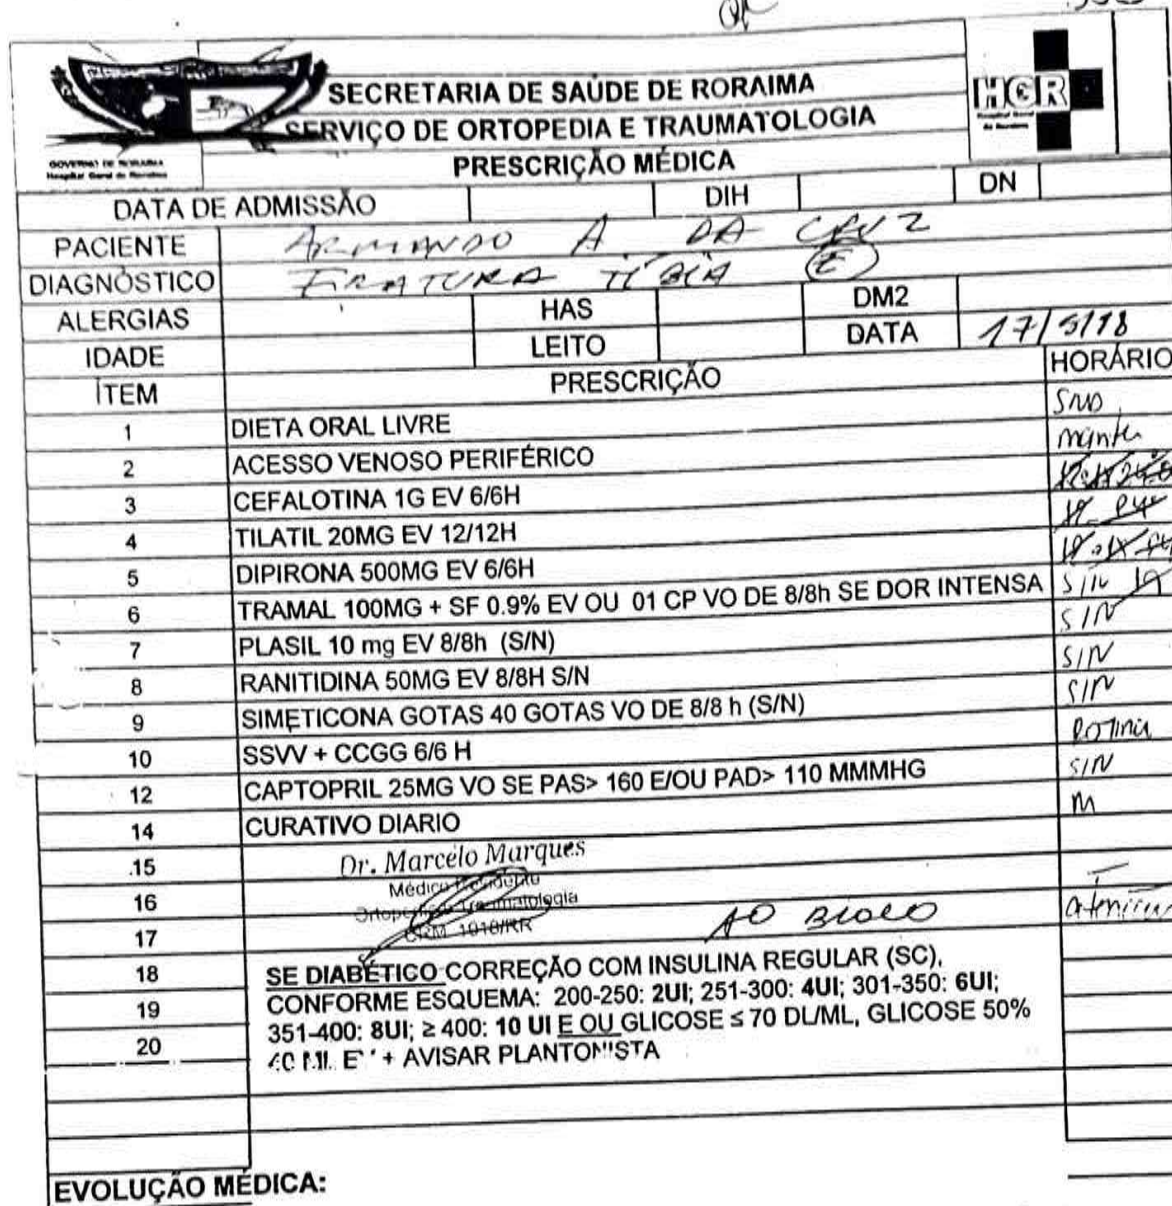 SECRETARIA DE SAÚDE DE RORAIMA
SERVIÇO DE ORTOPEDIA E TRAUMATOLOGIA
PRESCRIÇÃO MÉDICA
GOVERNO DE RORAIMA
Hospital Geral de Roraima
HGR
Hospital Geral
de Roraima
DATA DE ADMISSÃO DIH DN
PACIENTE ARMANDO A DA CRUZ
DIAGNÓSTICO FRATURA TÍBIA (E)
ALERGIAS HAS DM2
IDADE LEITO DATA 17/5/18
ÍTEM PRESCRIÇÃO HORÁRIO
1 DIETA ORAL LIVRE SND
2 ACESSO VENOSO PERIFÉRICO
3 CEFALOTINA 1G EV 6/6H
4 TILATIL 20MG EV 12/12H
5 DIPIRONA 500MG EV 6/6H
6 TRAMAL 100MG + SF 0.9% EV OU 01 CP VO DE 8/8h SE DOR INTENSA S/N
7 PLASIL 10 mg EV 8/8h (S/N) S/N
8 RANITIDINA 50MG EV 8/8H S/N S/N
9 SIMETICONA GOTAS 40 GOTAS VO DE 8/8 h (S/N) S/N
10 SSVV + CCGG 6/6 H Rotina
12 CAPTOPRIL 25MG VO SE PAS> 160 E/OU PAD> 110 MMMHG S/N
14 CURATIVO DIARIO M
15 Dr. Marcelo Marques
Médico Residente
16 Ortopedia Traumatologia
17 CRM 1910/RR AO BLOCO
18 SE DIABÉTICO CORREÇÃO COM INSULINA REGULAR (SC),
19 CONFORME ESQUEMA: 200-250: 2UI; 251-300: 4UI; 301-350: 6UI;
20 351-400: 8UI; ≥ 400: 10 UI E OU GLICOSE ≤ 70 DL/ML, GLICOSE 50%
40 ML EV + AVISAR PLANTONISTA
EVOLUÇÃO MÉDICA: